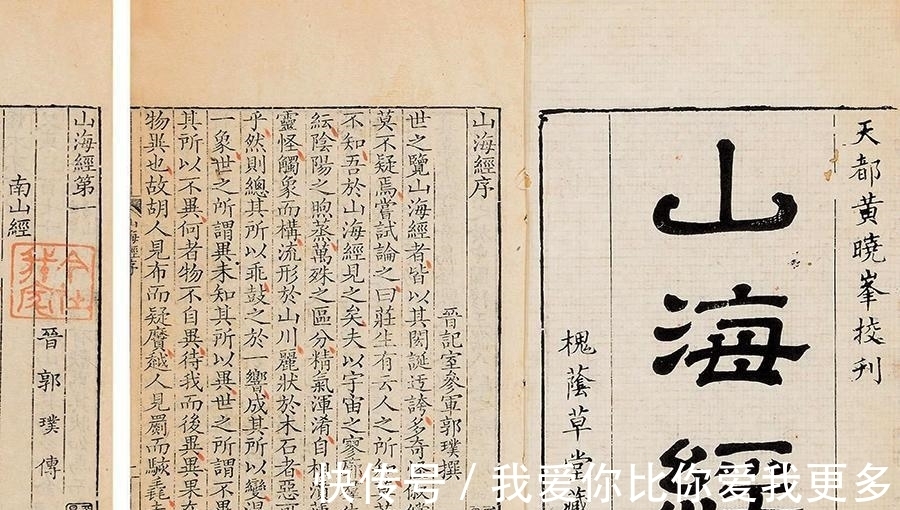 天都黃曉峯挍刊
山海經
槐蔭草堂藏
山海經序
晉記室參軍郭璞撰
世之覽山海經者皆以其閎誕迂誇多奇
莫不疑焉嘗試論之曰莊生有云人之所
不知吾於山海經見之矣夫以宇宙之寥廓
紜陰陽之煦蒸萬殊之區分精氣渾淆自相
靈怪觸象而構流形於山川麗狀於木石者惡可
乎然則總其所以乖鼓之於一響成其所以變混
一象世之所謂異未知其所以異世之所謂不異
其所以不異何者物不自異待我而後異異果在
物異也故胡人見布而疑黂越人見罽而駭毳
山海經序
山海經第一
南山經
晉郭璞傳
快传号/我爱你比你爱我更多